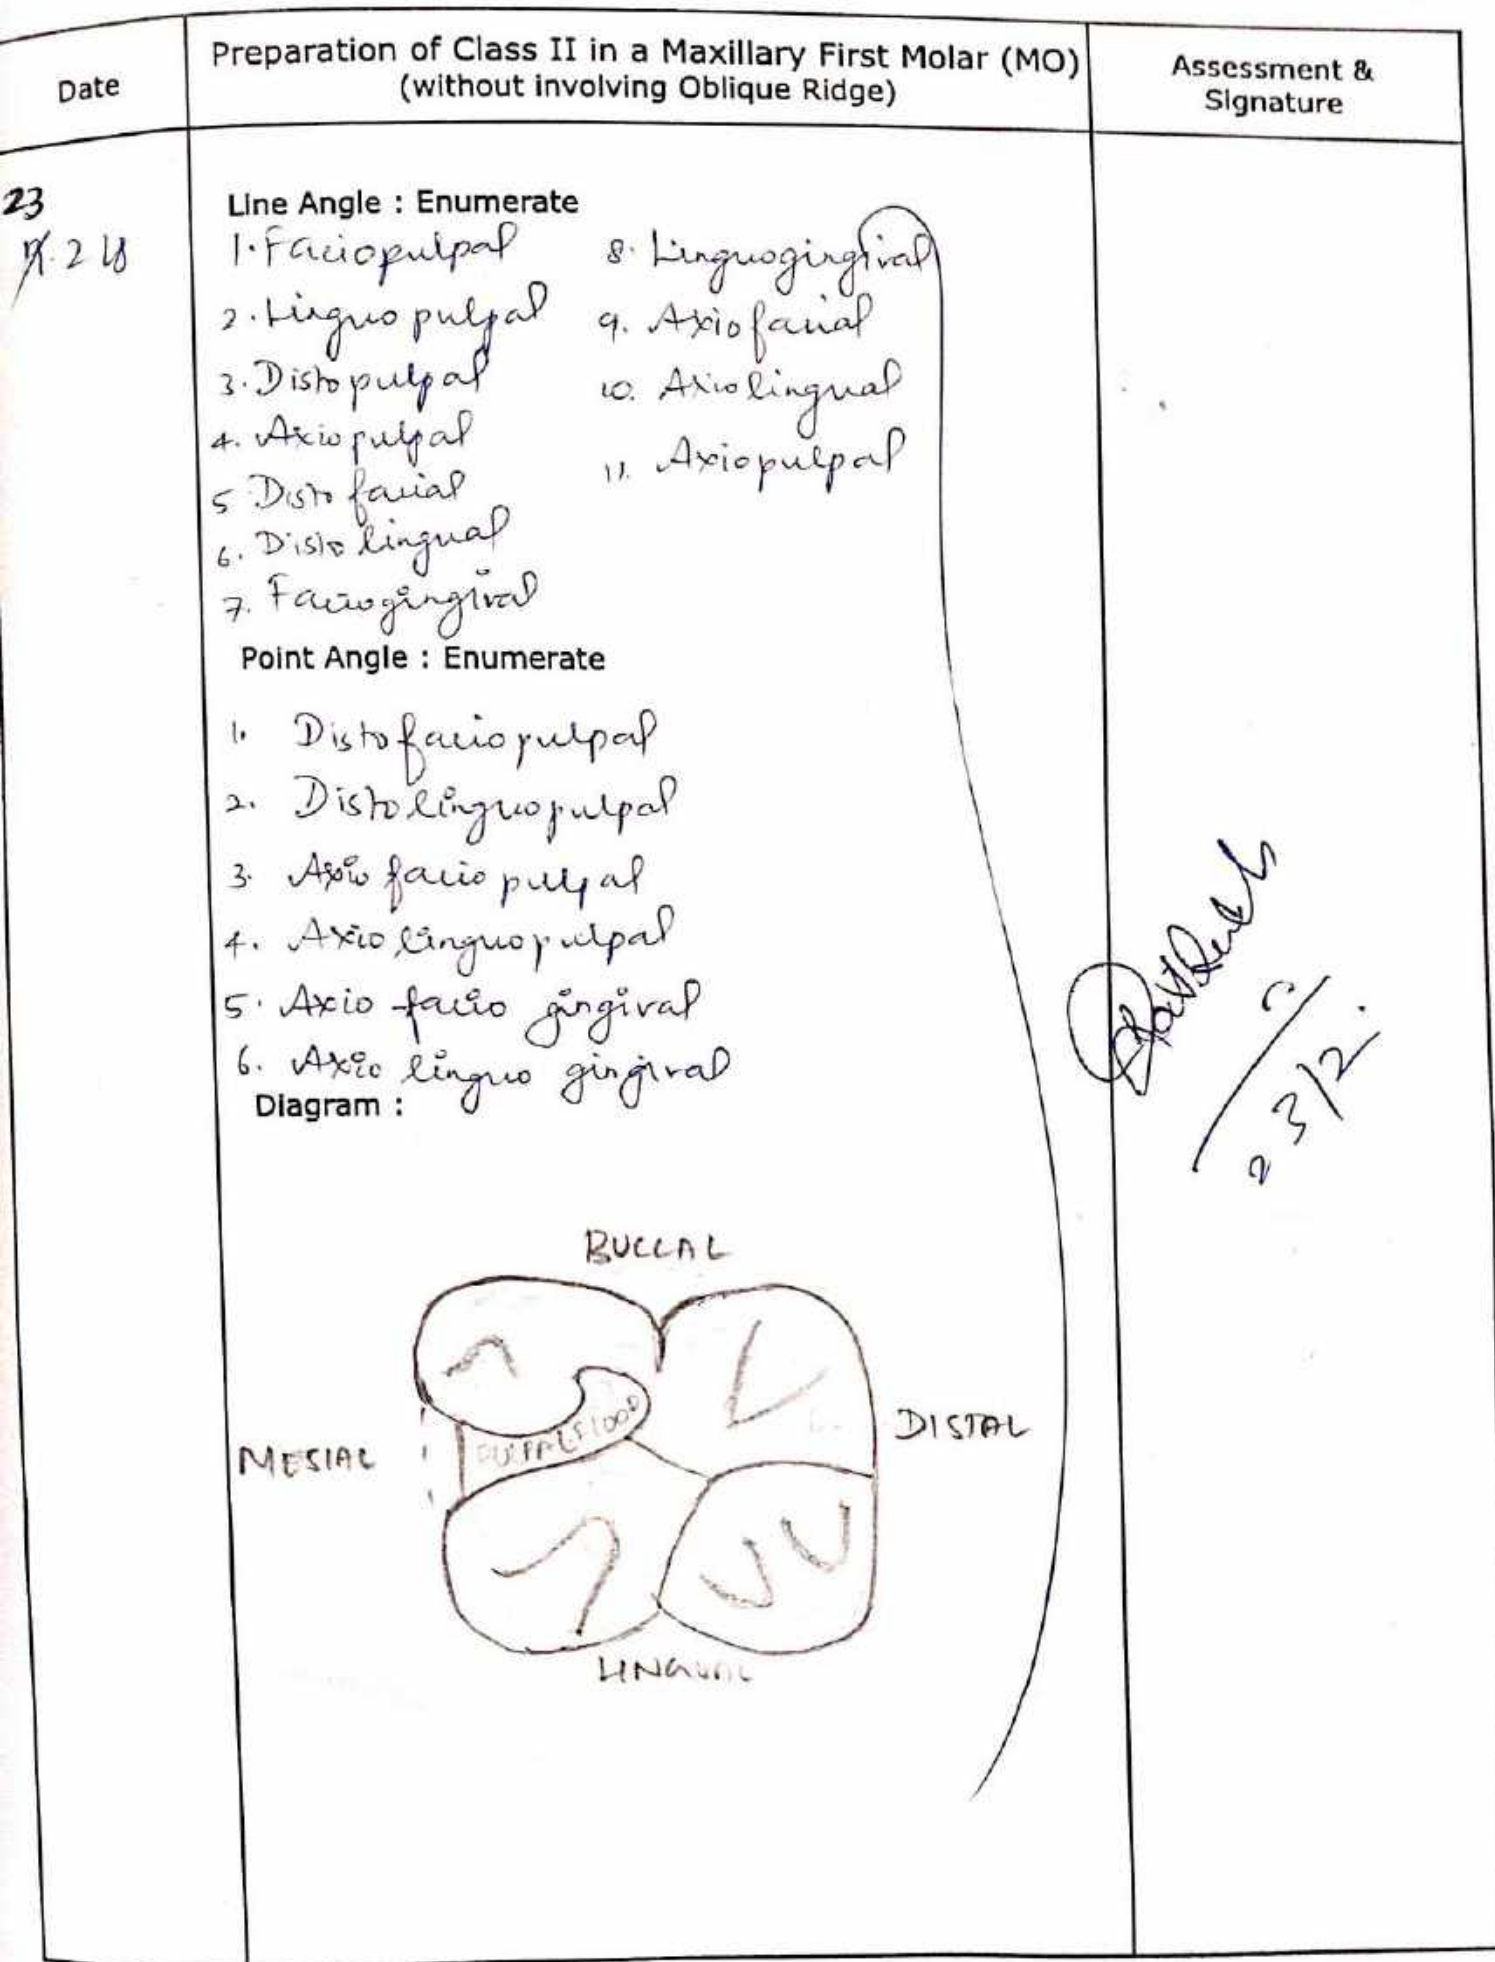 Date
Preparation of Class II in a Maxillary First Molar (MO)
(without involving Oblique Ridge)
Assessment &
Signature
23
2 18
Line Angle : Enumerate
1. Faciopulpal
2. Linguopulpal
3. Distopulpal
4. Axiopulpal
5 Disto facial
6. Disto lingual
7. Faciogingival
8. Linguogingival
9. Axiofacial
10. Axiolingual
11. Axiopulpal
Point Angle : Enumerate
1. Distofaciopulpal
2. Distolinguopulpal
3. Axio facio pulpal
4. Axio linguopulpal
5. Axio facio gingival
6. Axio linguo gingival
Diagram :
23/2.
BUCCAL
MESIAL
PULPAL FLOOD
DISTAL
LINGUAL